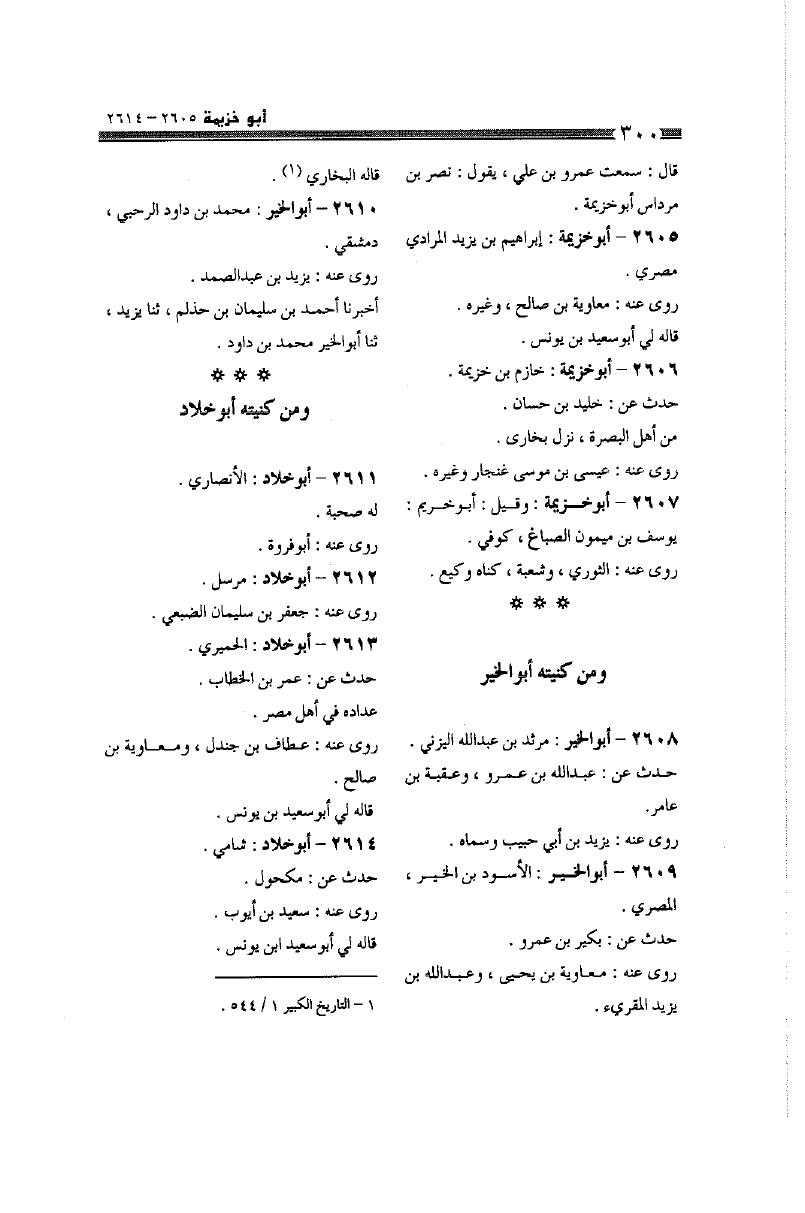 أبو خزيمة ٢٦٠٥ – ٢٦١٤
٣٠٠
قال : سمعت عمرو بن علي ، يقول : نصر بن
مرداس أبوخزيمة .
٢٦٠٥ – أبوخزيمة : إبراهيم بن يزيد المرادي
مصري .
روى عنه : معاوية بن صالح ، وغيره .
قاله لي أبوسعيد بن يونس .
٢٦٠٦ – أبوخزيمة : خازم بن خزيمة .
حدث عن : خليد بن حسان .
من أهل البصرة ، نزل بخارى .
روى عنه : عيسى بن موسى غنجار وغيره .
٢٦٠٧ – أبوخزيمة : وقيل : أبوخريم :
يوسف بن ميمون الصباغ ، كوفي .
روى عنه : الثوري ، وشعبة ، كناه وكيع .
* * *
ومن كنيته أبوالخير
٢٦٠٨ – أبوالخير : مرثد بن عبدالله اليزني .
حدث عن : عبدالله بن عمرو ، وعقبة بن
عامر.
روى عنه : يزيد بن أبي حبيب وسماه .
٢٦٠٩ – أبوالخير : الأسود بن الخير ،
المصري .
حدث عن : بكير بن عمرو .
روى عنه : معاوية بن يحيى ، وعبدالله بن
يزيد المقريء .
قاله البخاري (١) .
٢٦١٠ – أبوالخير : محمد بن داود الرحبي ،
دمشقي .
روى عنه : يزيد بن عبدالصمد .
أخبرنا أحمد بن سليمان بن حذلم ، ثنا يزيد ،
ثنا أبوالخير محمد بن داود .
* * *
ومن كنيته أبوخلاد
٢٦١١ – أبوخلاد : الأنصاري .
له صحبة .
روى عنه : أبوفروة .
٢٦١٢ – أبوخلاد : مرسل .
روى عنه : جعفر بن سليمان الضبعي .
٢٦١٣ – أبوخلاد : الحميري .
حدث عن : عمر بن الخطاب .
عداده في أهل مصر .
روى عنه : عطاف بن جندل ، ومعاوية بن
صالح .
قاله لي أبوسعيد بن يونس .
٢٦١٤ – أبوخلاد : شامي .
حدث عن : مكحول .
روى عنه : سعيد بن أيوب .
قاله لي أبوسعيد ابن يونس .
١ – التاريخ الكبير ١ / ٥٤٤ .